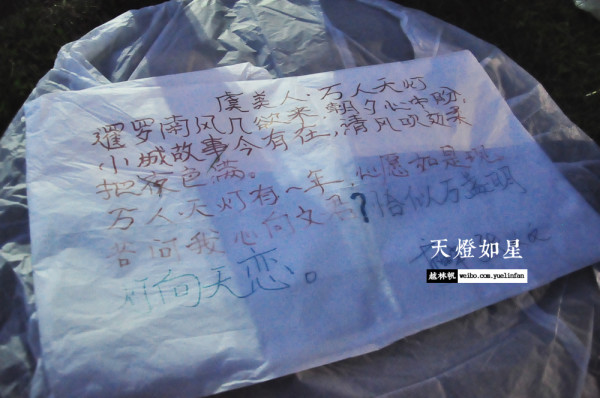 虞美人·万人天灯
暹罗南风几欲来,朝夕心中盼,
小城故事今有在,清风吹如来
把夜色满。
万人天灯有一年,心愿如是现,
若问我心向?恰似万盏明
灯向天恋。
天燈如星
越林帆 weibo.com.yuelinfan